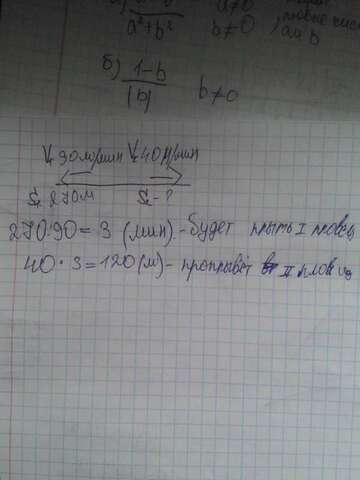 a²+b²    b≠0
б) 1-b
|b|    b≠0
V₁ 90м/мин V₂ 40м/мин
S₁ 270м    S₂-?
270:90=3 (мин)-будет плыть I пловец
40·3=120(м)-проплывёт II пловец